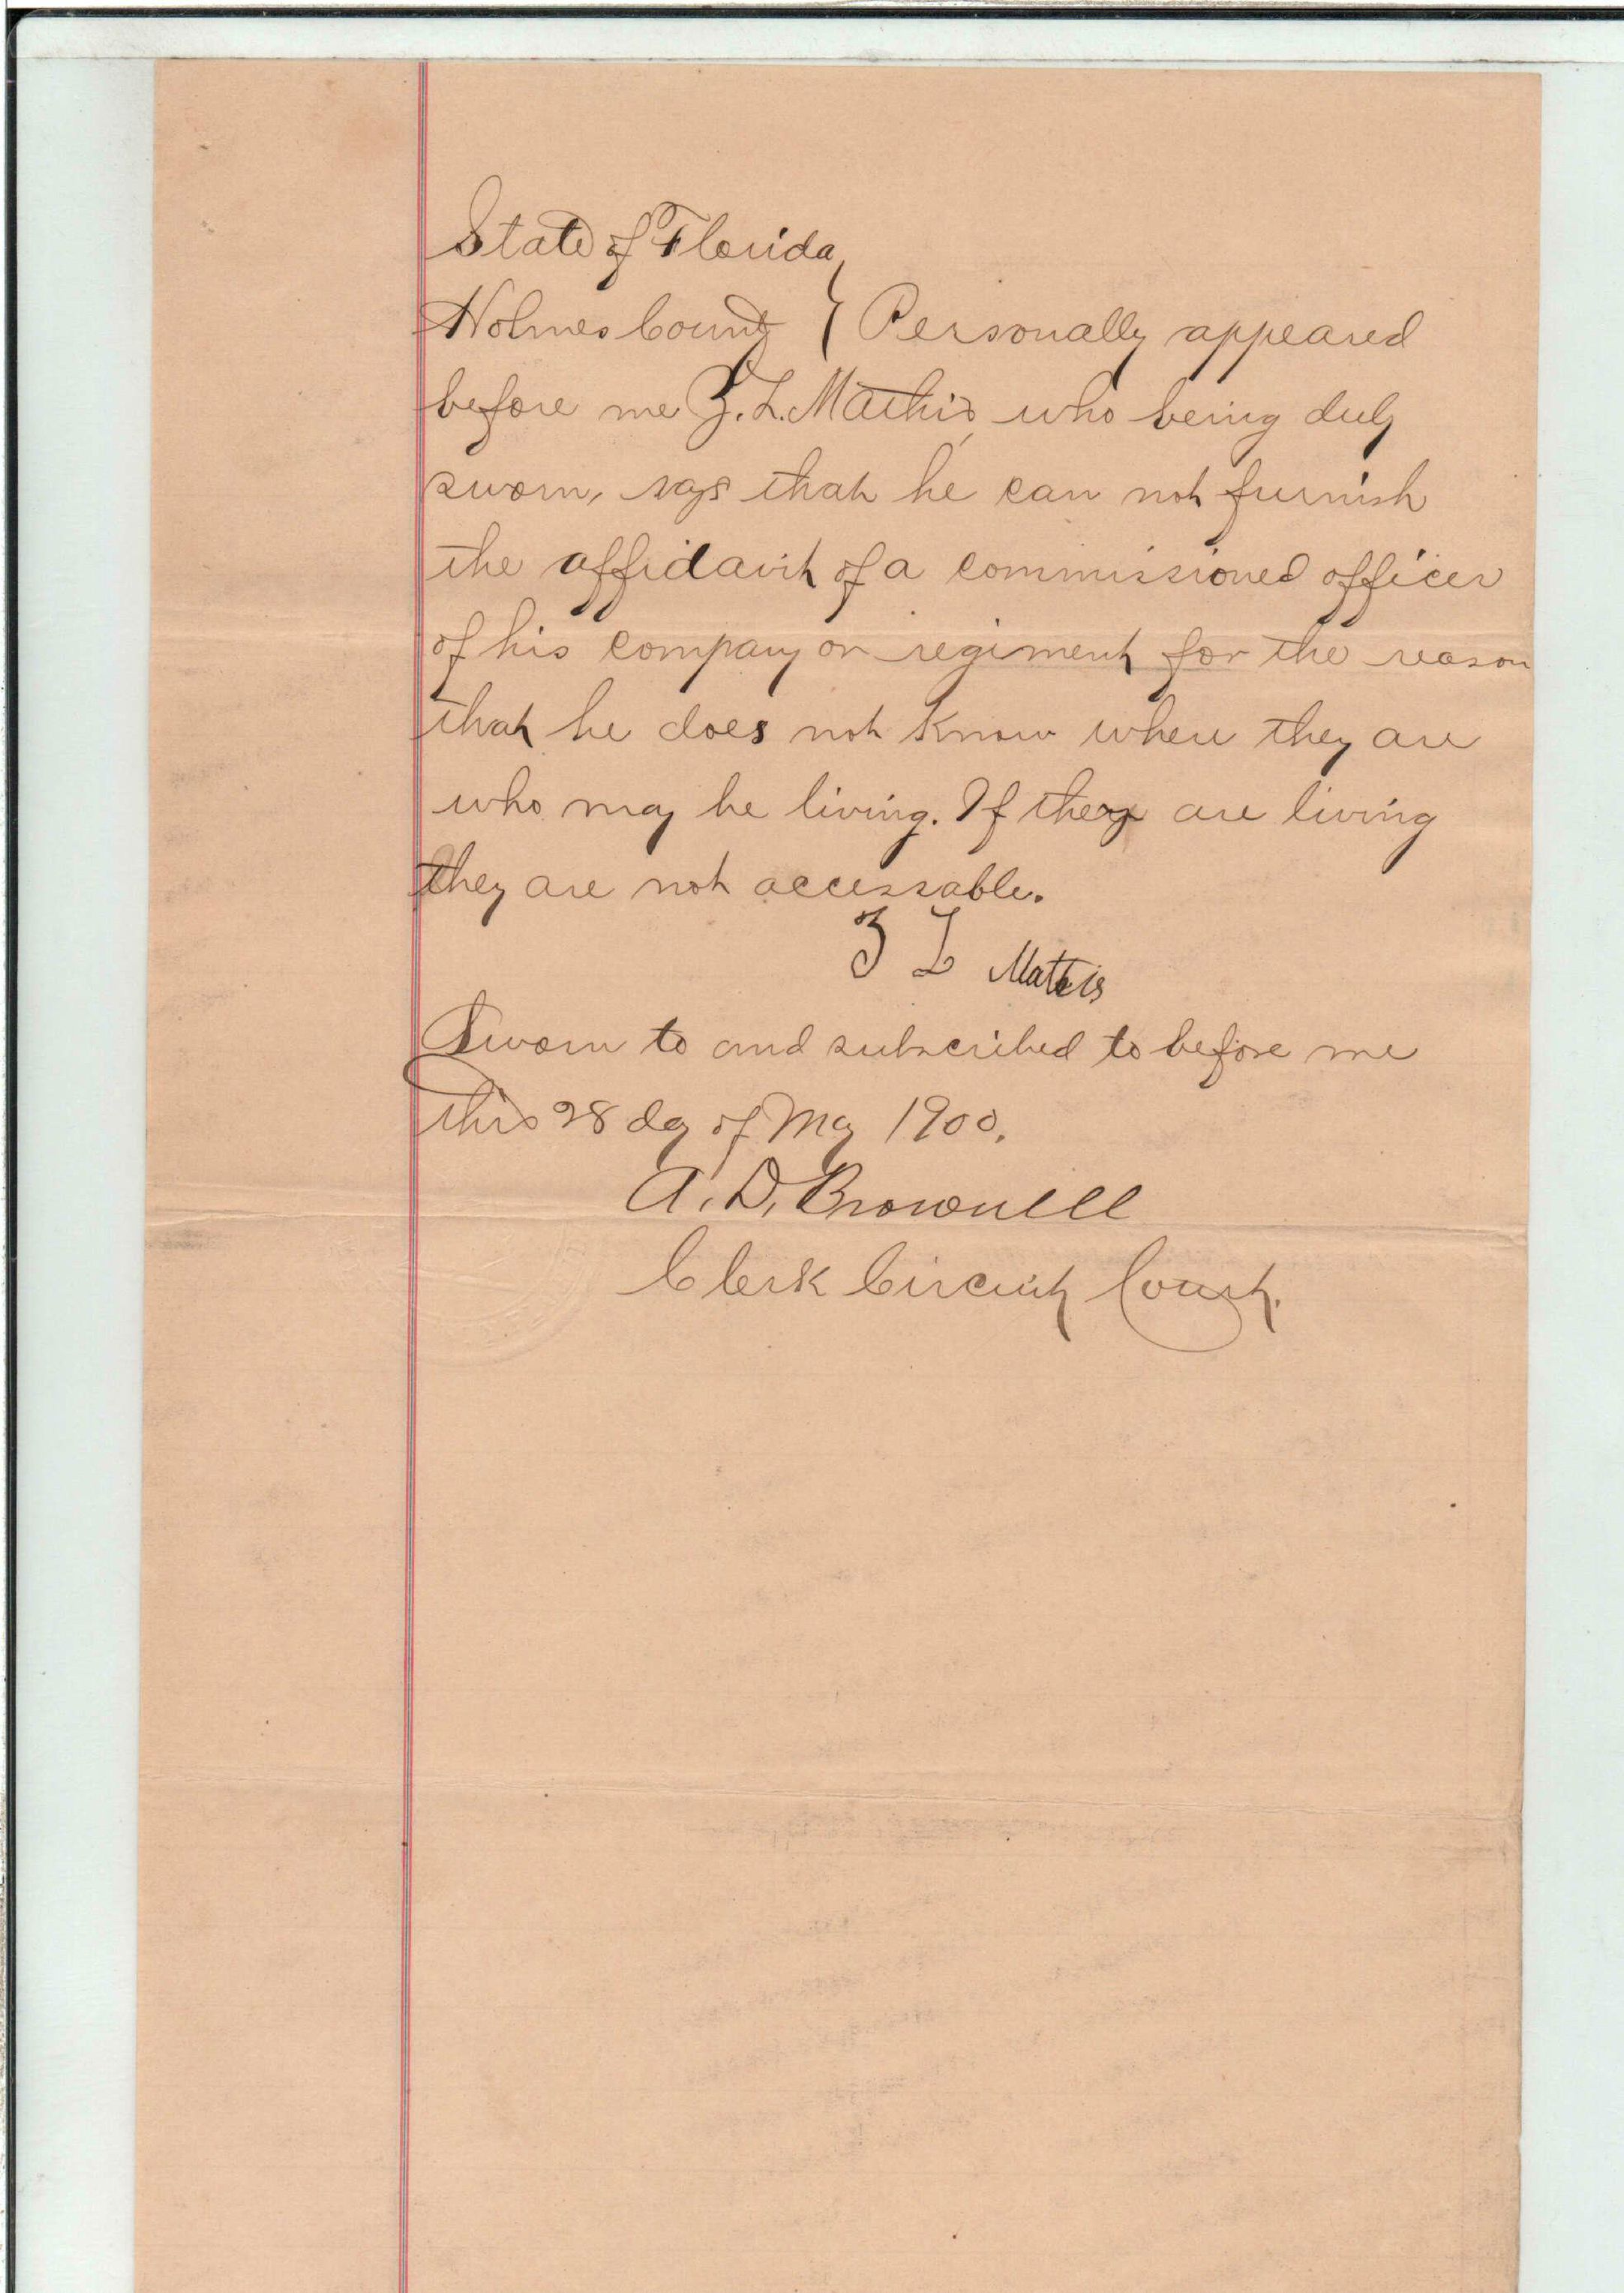 State of Florida,
Holmes County } Personally appeared
before me Z. L. Mathis who being duly
sworn, says that he can not furnish
the affidavit of a commissioned officer
of his company or regiment for the reason
that he does not know where they are
who may be living. If they are living
they are not accessable.
Z L Mathis
Sworn to and subscribed to before me
this 28 day of May 1900.
A. D. Brownell
Clerk Circuit Court.